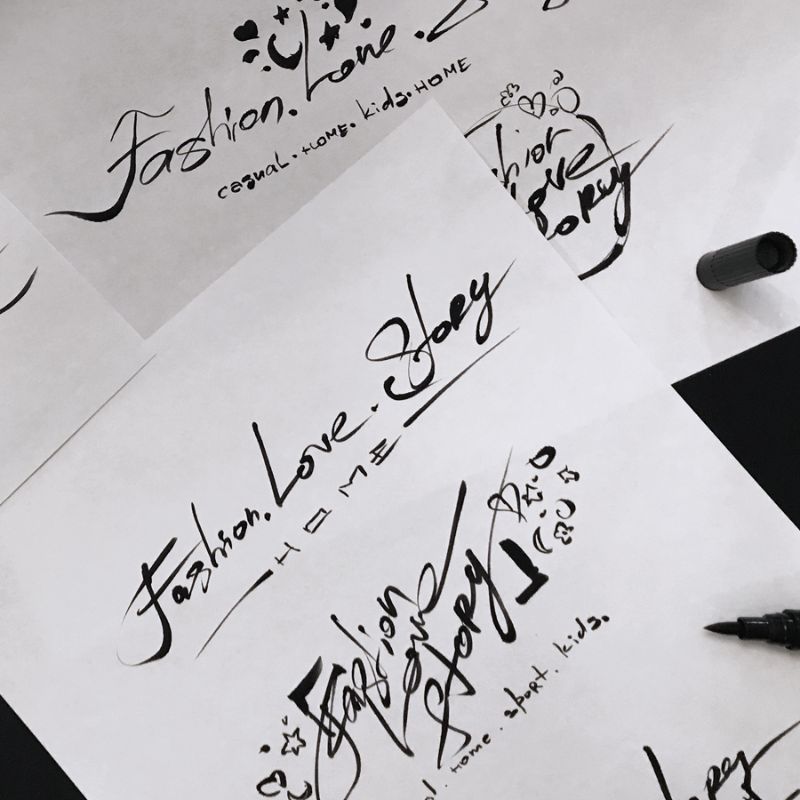 Fashion. Love.
casual. HOME. kids. HOME
Love
Story
Fashion. Love. Story
HOME
Fashion
Love
Story
home. sport. kids.